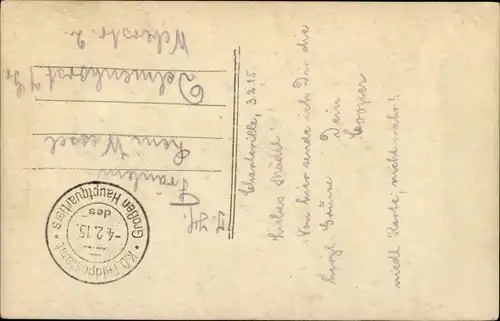 Charleville, 3.2.15.
Liebes Mädel!
Von hier sende ich Dir die
herzl. Grüsse
Dein
Cooper
niedl. Karte, nicht wahr!
Fräulein
Leni Wessel
Delmenhorst i/Gr.
Weberstr. 2.
K.D. Feldpostamt
-4.2.15.
des
Großen Hauptquartiers